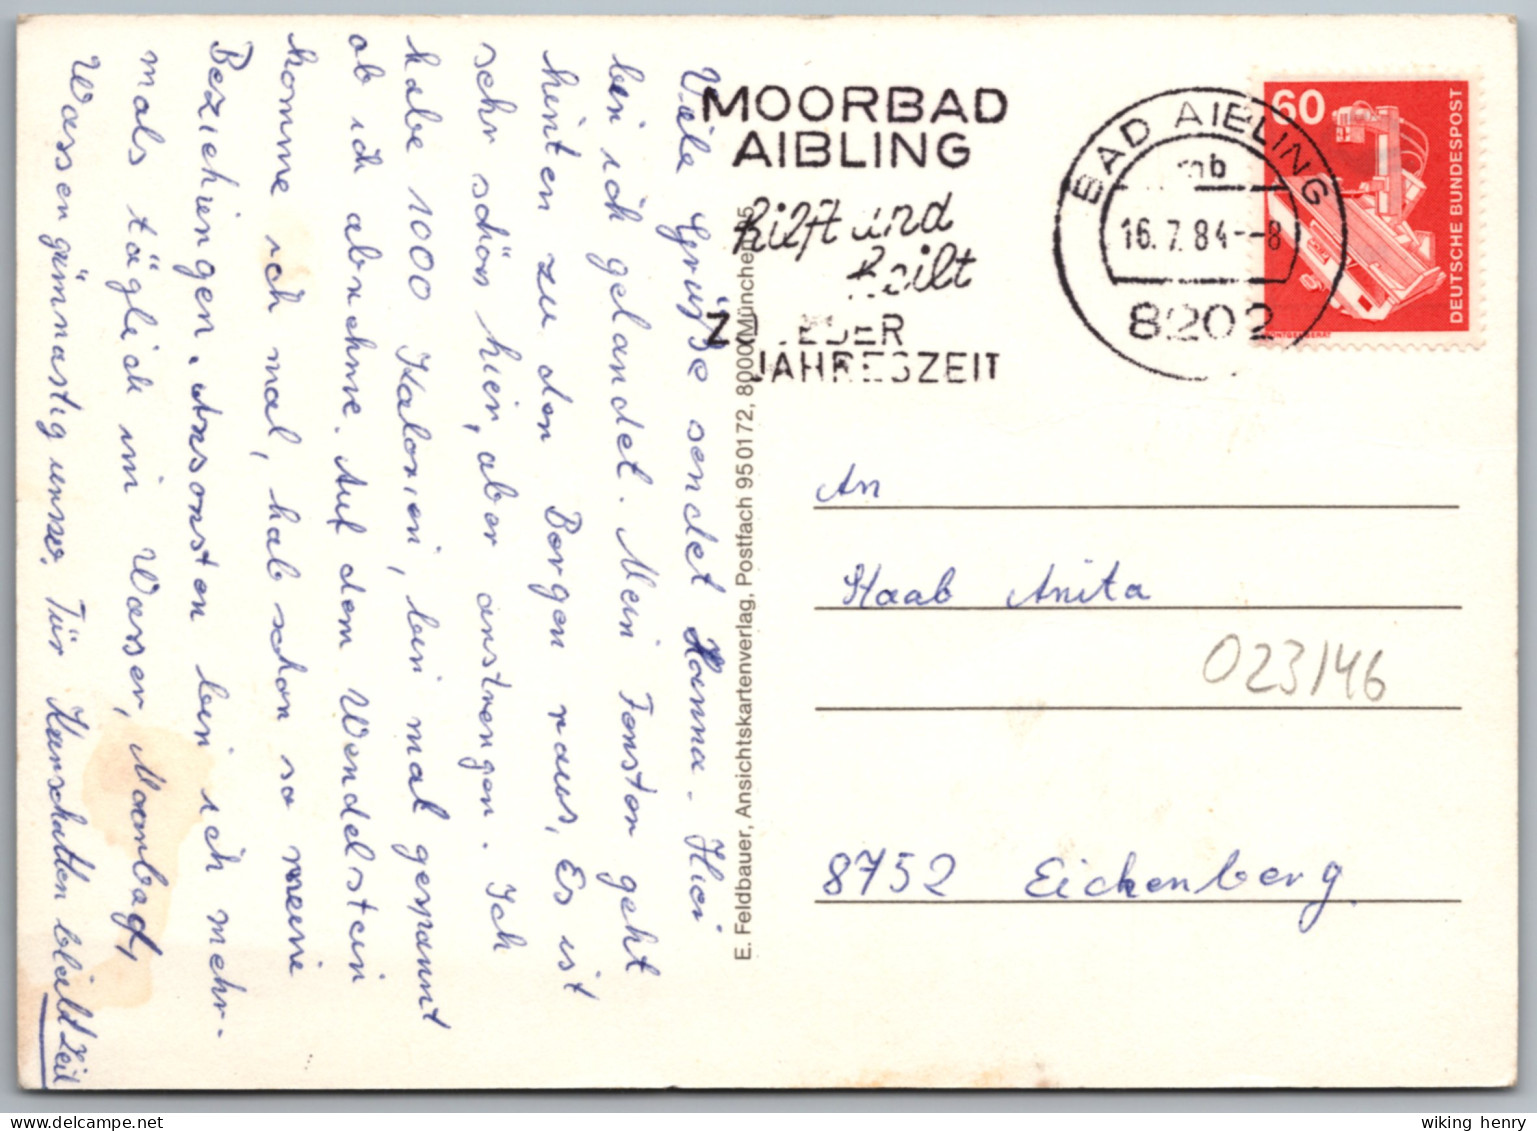 Viele Grüße sendet Hanna. Hier
bin ich gelandet. Mein Fenster geht
hinten zu den Bergen raus. Es ist
sehr schön hier, aber anstrengen. Ich
habe 1000 Kalorien, bin mal gespannt
ob ich abnehme. Auf dem Wendelstein
komme ich mal, hab schon so meine
Beziehungen. Ansonsten bin ich mehr-
mals täglich im Wasser, Moorbad,
Wassergümnastig usw. Für Kurschatten bleibt Zeit
MOORBAD
AIBLING
hilft und
heilt
ZU JEDER
JAHRESZEIT
BAD AIBLING
mb
16.7.84--8
8202
60
DEUTSCHE BUNDESPOST
E. Feldbauer, Ansichtskartenverlag, Postfach 950172, 8000 München 95
An
Haab Anita
023/46
8752 Eichenberg
wiking henry